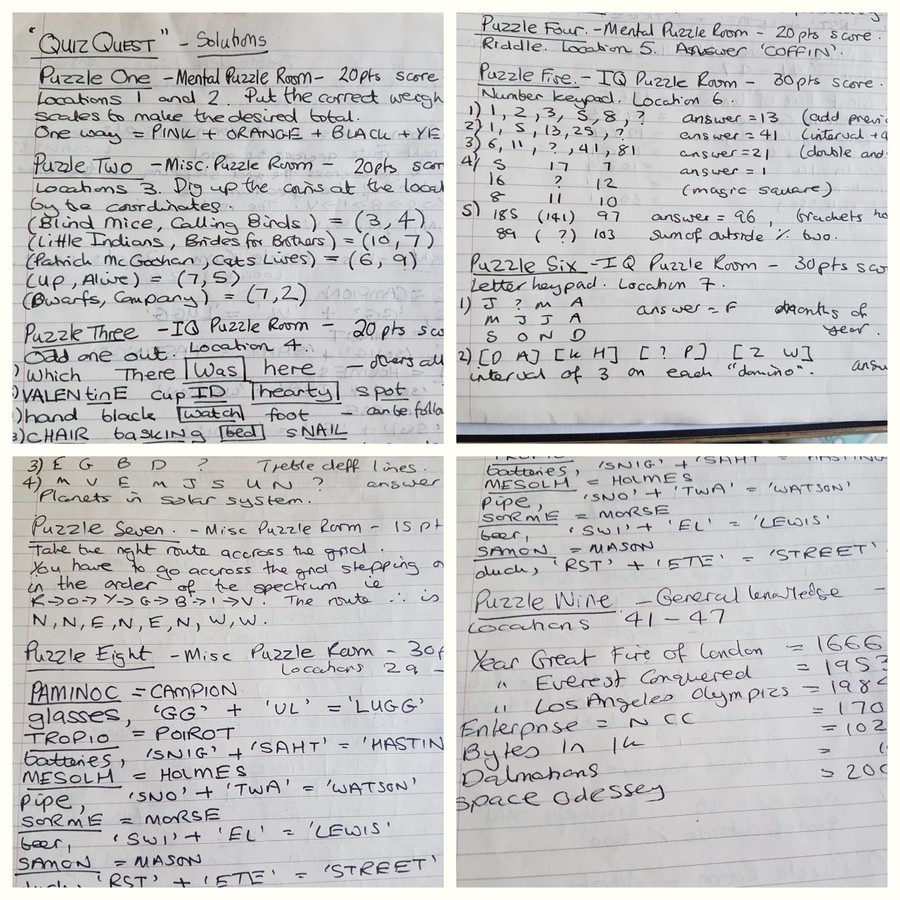 "QUIZ QUEST" - Solutions
Puzzle One - Mental Puzzle Room - 20pts score
Locations 1 and 2. Put the correct weigh
scales to make the desired total.
One way = PINK + ORANGE + BLACK + YE
Puzzle Two - Misc. Puzzle Room - 20pts scor
Locations 3. Dig up the coins at the local
by the coordinates.
(Blind Mice, Calling Birds) = (3, 4)
(Little Indians, Brides for Brothers) = (10, 7)
(Patrick McGoohan, Cats Lives) = (6, 9)
(Up, Alive) = (7, 5)
(Dwarfs, Company) = (7,2)
Puzzle Three - IQ Puzzle Room - 20 pts sco
Odd one out. Location 4.
) Which There Was here - others all
) VALENtinE cup ID hearty spot
) hand black watch foot - can be follo
3) CHAIR basking bed sNAIL
Puzzle Four. - Mental Puzzle Room - 20 pts score.
Riddle. Location 5. Answer 'COFFIN'.
Puzzle Five. - IQ Puzzle Room - 30 pts score.
Number keypad. Location 6.
1) 1, 2, 3, 5, 8, ? answer = 13 (add previ
2) 1, 5, 13, 25, ? answer = 41 (interval +4
3) 6, 11, ?, 41, 81 answer = 21 (double and
4) 5 17 7 answer = 1
16 ? 12 (magic square)
8 11 10
5) 185 (141) 97 answer = 96, brackets ho
89 ( ? ) 103 sum of outside % two.
Puzzle Six - IQ Puzzle Room - 30pts sco
Letter keypad. Location 7.
1) J ? M A answer = F months of
M J J A year.
S O N D
2) [D A] [K H] [? P] [Z W]
interval of 3 on each "domino". answ
3) E G B D ? Treble cleff lines.
4) M V E M J S U N ? answer
Planets in solar system.
Puzzle Seven. - Misc Puzzle Room - 15 pt
Take the right route accross the grid.
You have to go accross the grid stepping o
in the order of the spectrum ie
R→O→Y→G→B→I→V. The route ∴ is
N, N, E, N, E, N, W, W.
Puzzle Eight - Misc Puzzle Room - 30p
Locations 29 -
PAMINOC = CAMPION
glasses, 'GG' + 'UL' = 'LUGG'
TROPIO = POIROT
batteries, 'SNIG' + 'SAHT' = 'HASTIN
MESOLH = HOLMES
pipe, 'SNO' + 'TWA' = 'WATSON'
SORME = MORSE
beer, 'SWI' + 'EL' = 'LEWIS'
SAMON = MASON
duck, 'RST' + 'ETE' = 'STREET'
batteries, 'SNIG' + 'SAHT' = 'HASTING
MESOLH = HOLMES
pipe, 'SNO' + 'TWA' = 'WATSON'
SORME = MORSE
beer, 'SWI' + 'EL' = 'LEWIS'
SAMON = MASON
duck, 'RST' + 'ETE' = 'STREET'
Puzzle Nine - General knowledge -
Locations 41 - 47
Year Great Fire of London = 1666
" Everest Conquered = 1953
" Los Angeles Olympics = 198
Enterprise = NCC = 170
Bytes in 1k = 102
Dalmatians =
Space Odessey = 200